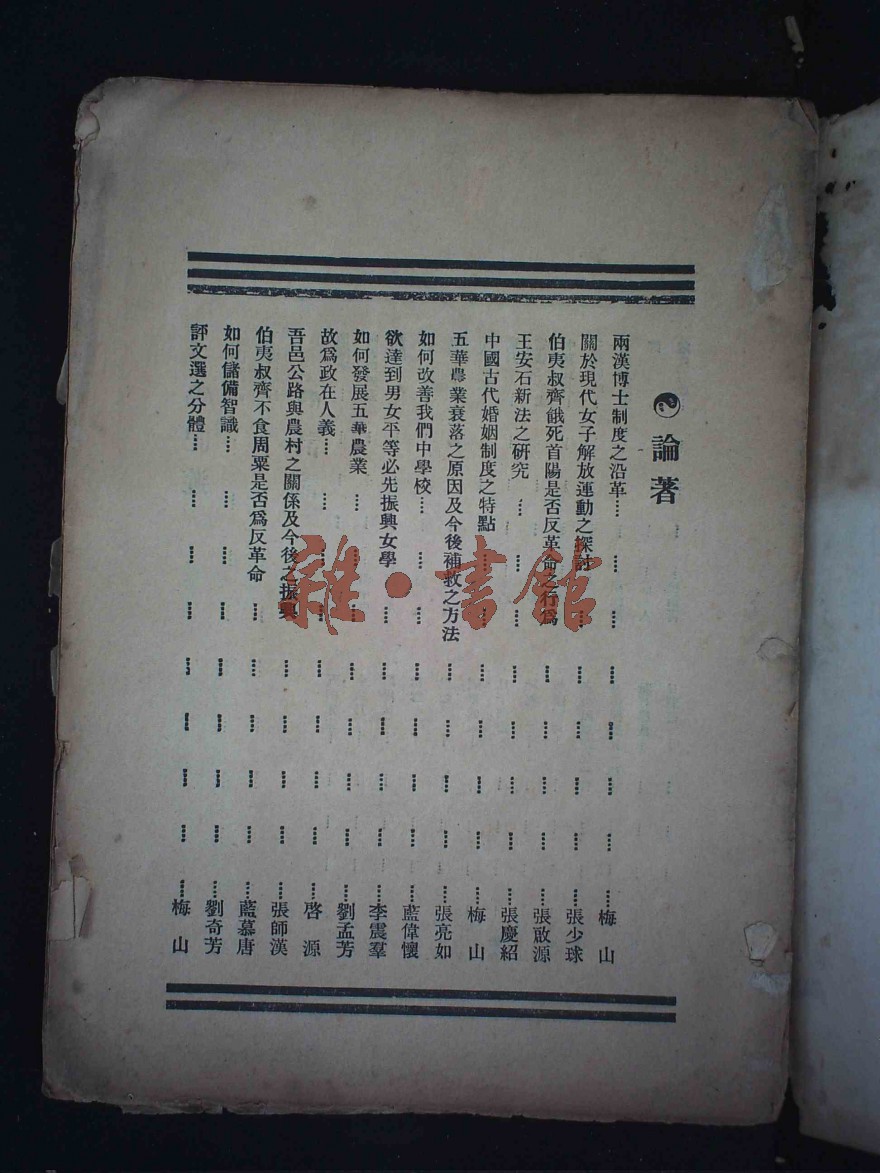 論著
兩漢博士制度之沿革⋯⋯梅山
關於現代女子解放運動之探討⋯⋯張少球
伯夷叔齊餓死首陽是否反革命之行爲⋯⋯張啟源
王安石新法之硏究⋯⋯張慶紹
中國古代婚姻制度之特點⋯⋯梅山
五華農業衰落之原因及今後補救之方法⋯⋯張亮如
如何改善我們中學校⋯⋯藍偉懷
欲達到男女平等必先振興女學⋯⋯李震羣
如何發展五華農業⋯⋯劉孟芳
故爲政在人義⋯⋯啓源
吾邑公路與農村之關係及今後之振興⋯⋯張師漢
伯夷叔齊不食周粟是否爲反革命⋯⋯藍慕唐
如何儲備智識⋯⋯劉奇芳
評文選之分體⋯⋯梅山
雜·書館